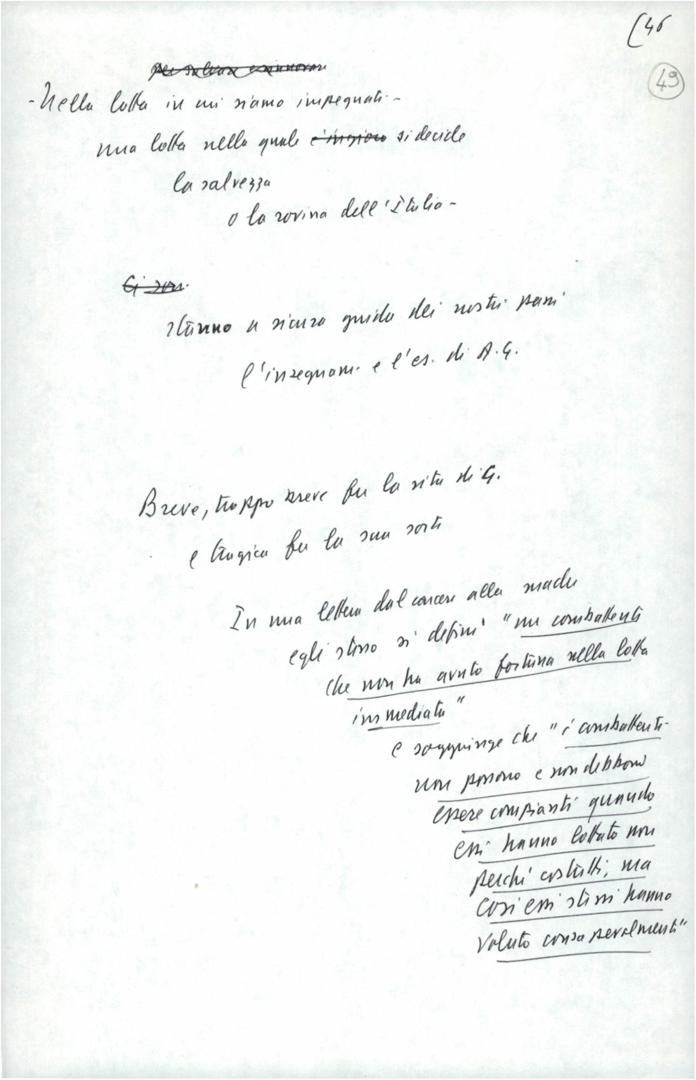 [46
49
- Nella lotta in cui siamo impegnati -
una lotta nella quale si decide
la salvezza
o la rovina dell'Italia -
Ci son
stanno a sicura guida dei nostri passi
l'insegnam. e l'es. di A.G.
Breve, troppo breve fu la vita di G.
e tragica fu la sua sorte
In una lettera dal carcere alla madre
egli stesso si definì "un combattente
che non ha avuto fortuna nella lotta
immediata"
e soggiunge che "i combattenti
non possono e non debbono
essere compianti quando
essi hanno lottato non
perché costretti, ma
così essi stessi hanno
voluto consapevolmente"